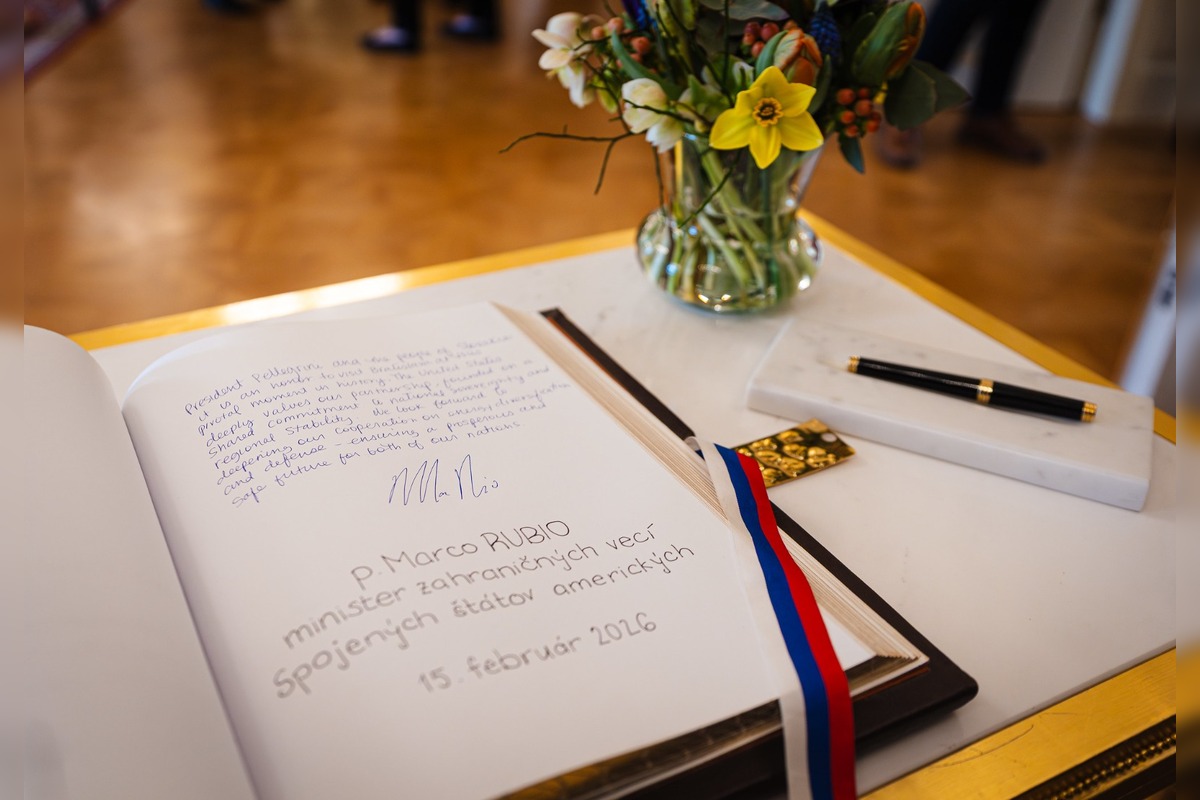 President Pellegrini and the people of Slovakia
it is an honor to visit Bratislava at this
pivotal moment in history. The United States
deeply values our partnership, founded on a
shared commitment to national sovereignty and
regional stability. We look forward to
deepening our cooperation on energy diversification
and defense - ensuring a prosperous and
safe future for both of our nations
p. Marco RUBIO
minister zahraničných vecí
Spojených štátov amerických
15. február 2026